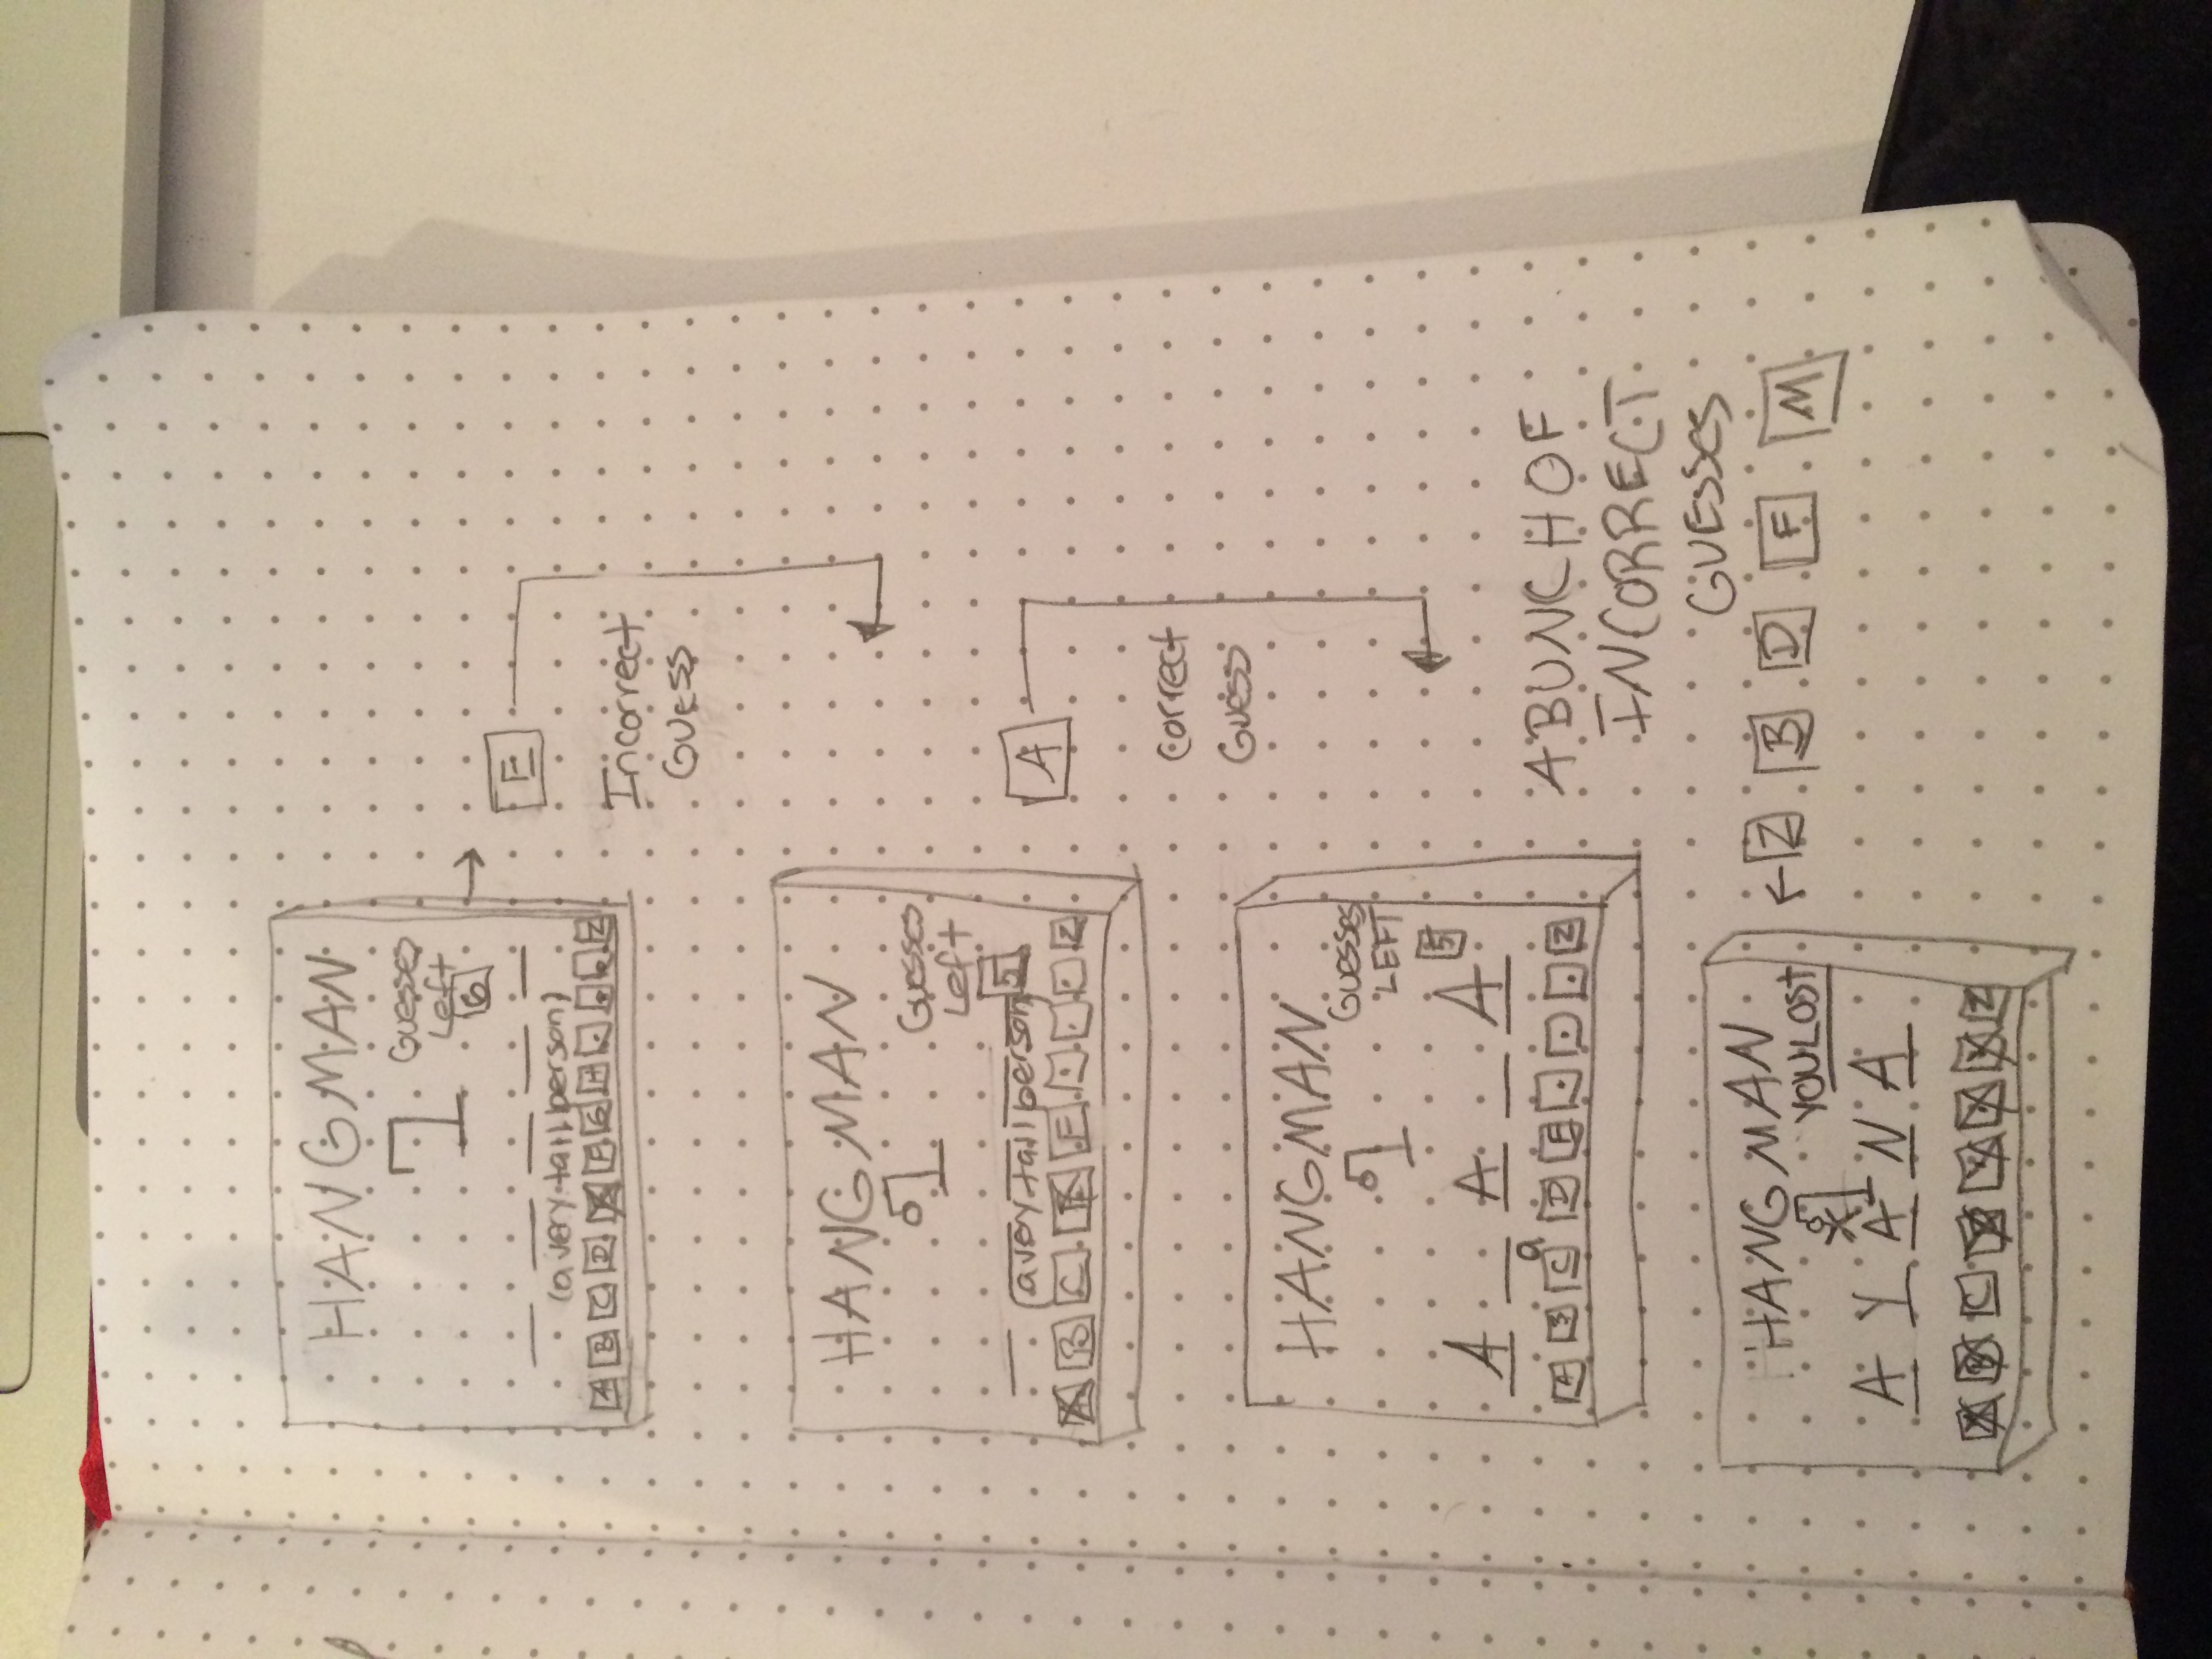 HANGMAN
Guesses
Left
6
(a very tall person)
A B C D F G H Z
E
Incorrect
Guess
HANGMAN
Guesses
Left
5
(a very tall person)
A B C E Z
A
Correct
Guess
HANGMAN
Guesses
LEFT
5
A A A
a
A B C D E Z
A BUNCH OF
INCORRECT
GUESSES
Z B D F M
HANGMAN
YOU LOST
A Y A N A
A B C Z